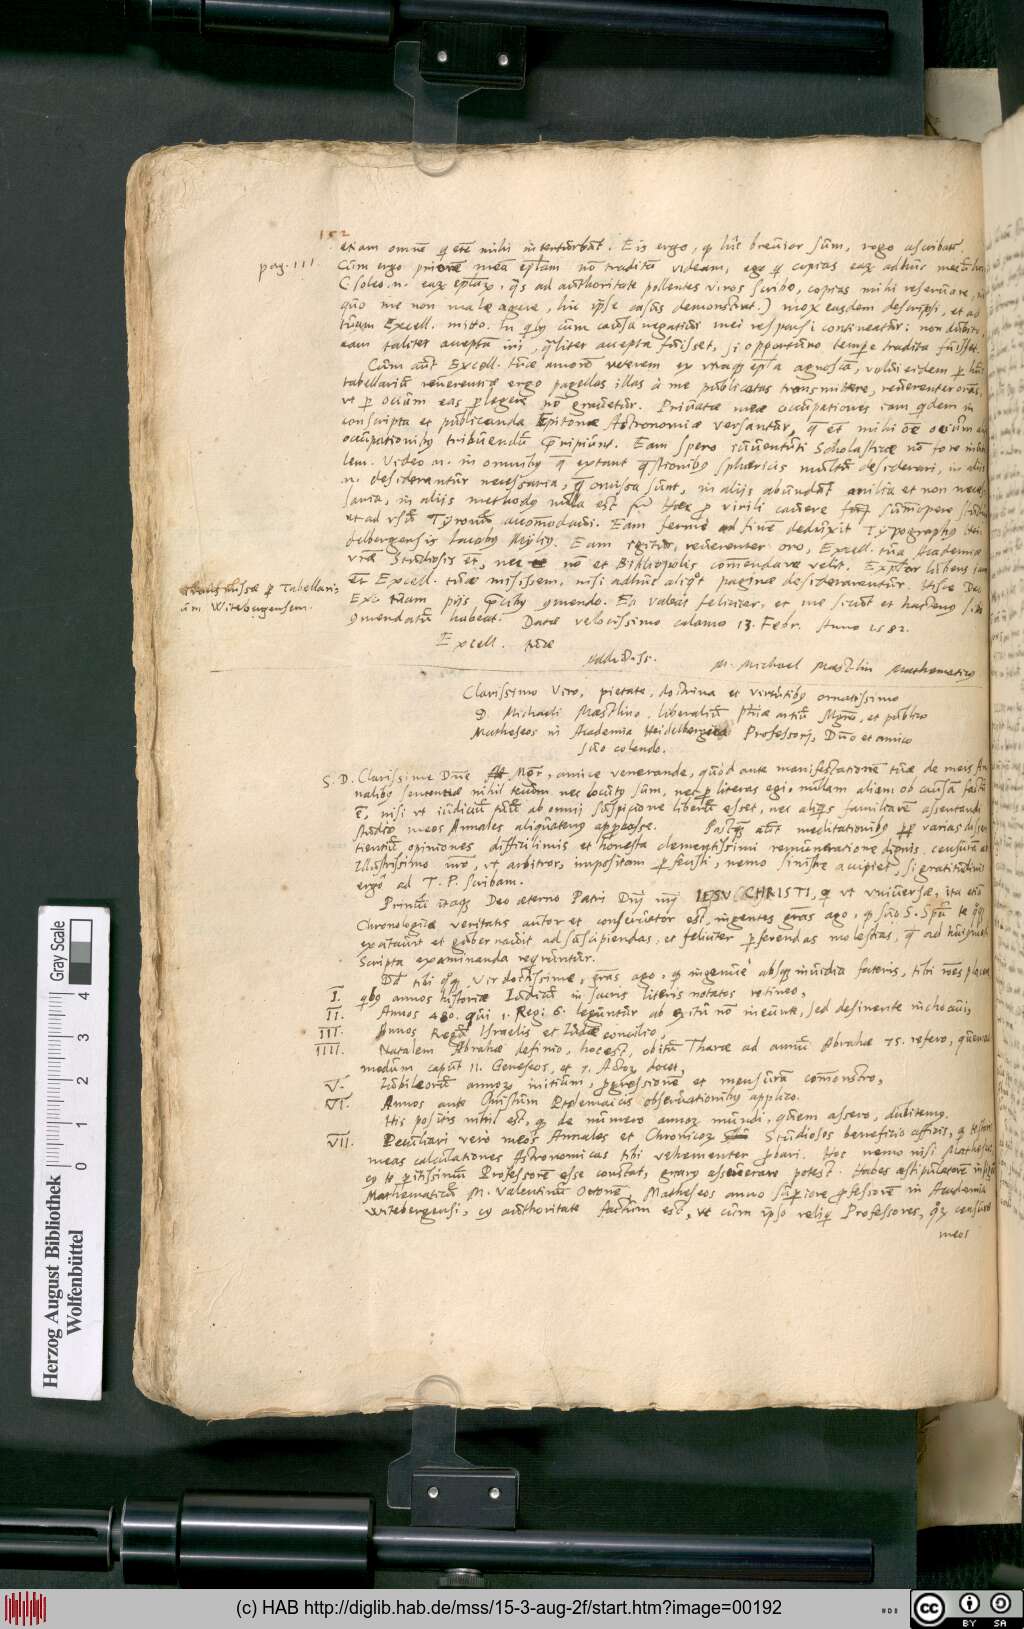 152
etiam omne q etc mihi interturbat. Eis ergo, q his brevior sum, rogo ascribatis
pag. 111.
Cum ergo priore mea epla non tradita videam, ego q copias eaz adhuc
(soleo. n. eaz eplaz, qs ad authoritate pollentes viros scribo, copias mihi reservare,
quo me non male agere, hic ipse casus demonstrat.) mox easdem descripsi, et ad
tuam Excell. mitto. In qby cum causa negativi mei responsi contineatur: non dubito,
eam taliter accepta iri, qliter accepta fuisset, si opportuno tempe tradita fuisset.
Cum aut Excell. tuae amore veterem ex utraq epla agnosca, volui eidem p hu
tabellariu reverentiae ergo pagellas illas à me publicatas transmittere, reverenter orans,
vt p ocium eas plegere no gravetur. Privatae meae occupationes iam qdem in
conscripta et publicanda Epitome Astronomiae versantur, q et mihi oe ocium
occupationiby tribuendu pripiunt. Eam spero iuventuti Scholasticae no fore
lem. Video .n. in omniby q extant qstioniby sphaericis multa desiderari, in aliis
n. desiderantur necessaria, q omissa sunt, in alijs abundat anilia et non neces
saria, in alijs methody nulla est
et ad usu Tyronu accomodavi. Eam ferme ad fine deduxit Typography Hei
delbergensis Iacoby Mylly. Eam igitur, reverenter oro, Excell. tua Academiae
vrae Studiosis et, nec no et Bibliopolis comendare velit.
et Excell. tuae misissem, nisi adhuc aliqt paginae desiderarentur. Hisce Deo
Exc. tuam pijs pciby comendo. Ea valeat feliciter, et me sicut et hacteny sibi
comendatu habeat. Datae velocissimo calamo 13. Febr. Anno 1582.
p Tabellari,
um Witebergensem.
Excell. tuae
Addictiss. M. Michael Maestlin Mathematicus
Clarissimo Viro, pietate, doctrina et virtutiby ornatissimo
D. Michaeli Maestlino, liberaliu phiae artiu Mgro, et publico
Matheseos in Academia Heidelbergica Professori, Dno et amico
suo colendo.
S. D. Clarissime Dne Mgr, amice venerande, quod ante manifestatione tuae de meis An
naliby sententiae nihil tecum nec locuty sum, nec p literas egi, nullam aliam ob causam factu
e, nisi vt iudiciu tuu ab omni suspicione liberu esset, nec aliqs familiare assentandi
studio meos Annales aliquateny approbasse. Postqz aut meditationiby pp varias dissen
tientiu opiniones difficilimis et honesta clementissimi remuneratione dignis, censura et
Illustrissimo nro, vt arbitror, impositam pfecisti, nemo sinistre accipiet, si gratitudinis
ergo ad T. P. scribam.
Primu itaqz Deo aeterno Patri Dnj nrj IESU CHRISTI, q vt universae, ita etia
Chronologiae veritatis autor et conservator est, ingentes gras ago, q suo S. Spu te qqz
excitavit et gubernavit ad suscipiendas, et feliciter pferendas molestias, q ad huiusmodi
Scripta examinanda requiruntur.
Dd tibi qqz, Vir doctissime, gras ago, q ingenue absqz invidia fateris, tibi roes placere,
I. qby annos historiae Iudicu in sacris literis notatos retineo,
II. Annos 480. qui 1. Reg: 6. leguntur ab exitu no ineunte, sed desinente inchoavi,
III. Annos Regu Israelis et Iudae concilio,
IIII. Natalem Abrahae definio, hoc est, obitu Tharae ad annu Abrahae 75. refero, quemad
modum caput 11. Geneseos, et 7. Actoz docet,
V. Iubilaeoru annoz initium, pgressione et mensura comonstro,
VI. Annos ante Christum Ptolemaicis observationiby applico.
His positis nihil est, q de numero annoz mundi, quem assero, dubitemy.
VII. Peculiari vero meos Annales et Chronicoz Studiosos beneficio afficis, q testaris
meas calculationes Astronomicas tibi vehementer pbari. Hoc nemo nisi Mathesis,
cy te pitissimu Professore esse constat, gravy asseverare potest. Habes astipulatore
Mathematicu M. Valentinu Ottone, Matheseos anno supiore pfessore in Academia
Witebergensi, cy authoritate factum est, vt cum ipso reliq Professores, qz censura
meos
Gray Scale
0 1 2 3 4
Herzog August Bibliothek
Wolfenbüttel
(c) HAB http://diglib.hab.de/mss/15-3-aug-2f/start.htm?image=00192
HAB
cc BY SA